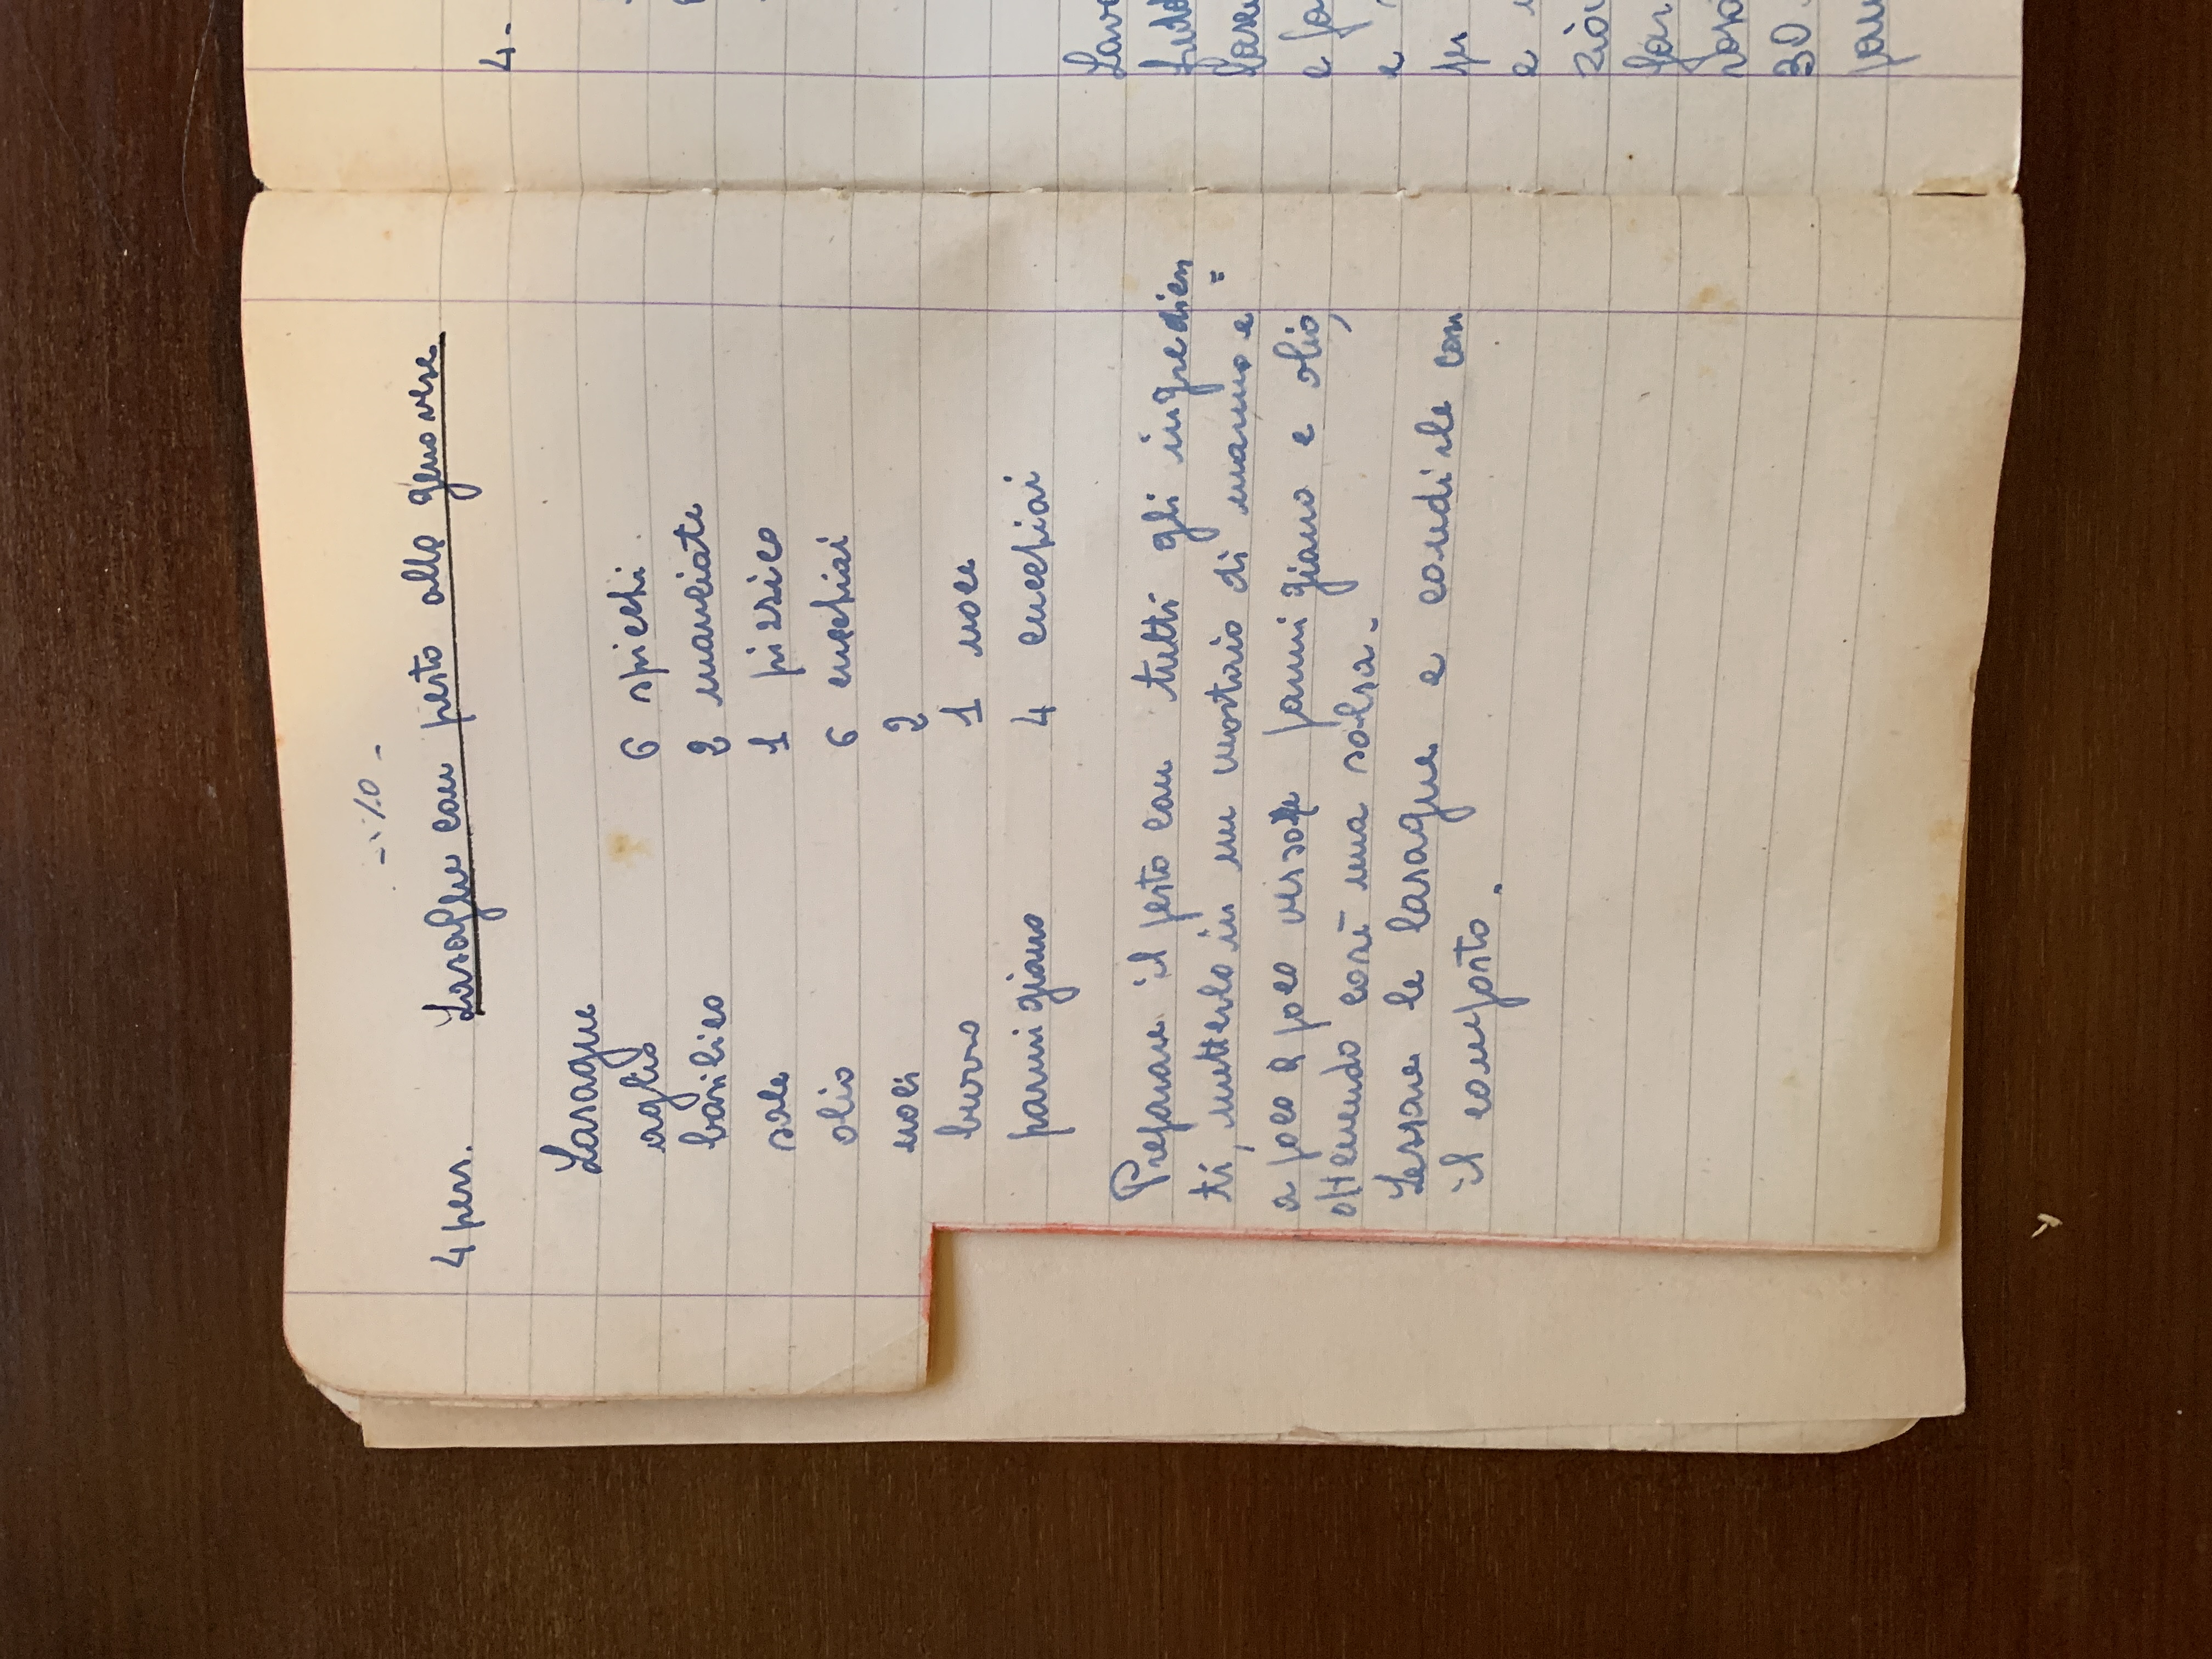 4 pers. Lasagne con pesto alla genovese
4-
Lasagne
aglio 6 spicchi
basilico 2 manciate
sale 1 pizzico
olio 6 cucchiai
noci 2
burro 1 noce
parmigiano 4 cucchiai
Preparare il pesto con tutti gli ingredien
ti, metterlo in un mortaio di marmo e
a poco a poco versare parmigiano e olio,
ottenendo così una salsa.
Lessare le lasagne e condirle con
il composto.
e
per
e
30